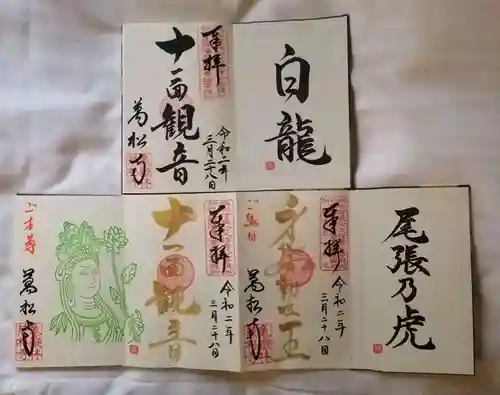 奉拝
十一面観音
萬松寺
令和二年
三月二十八日
白龍
ご本尊
萬松寺
奉拝
十一面観音
令和二年
三月二十八日
奉拝
身代不動明王
萬松寺
令和二年
三月二十八日
尾張乃虎